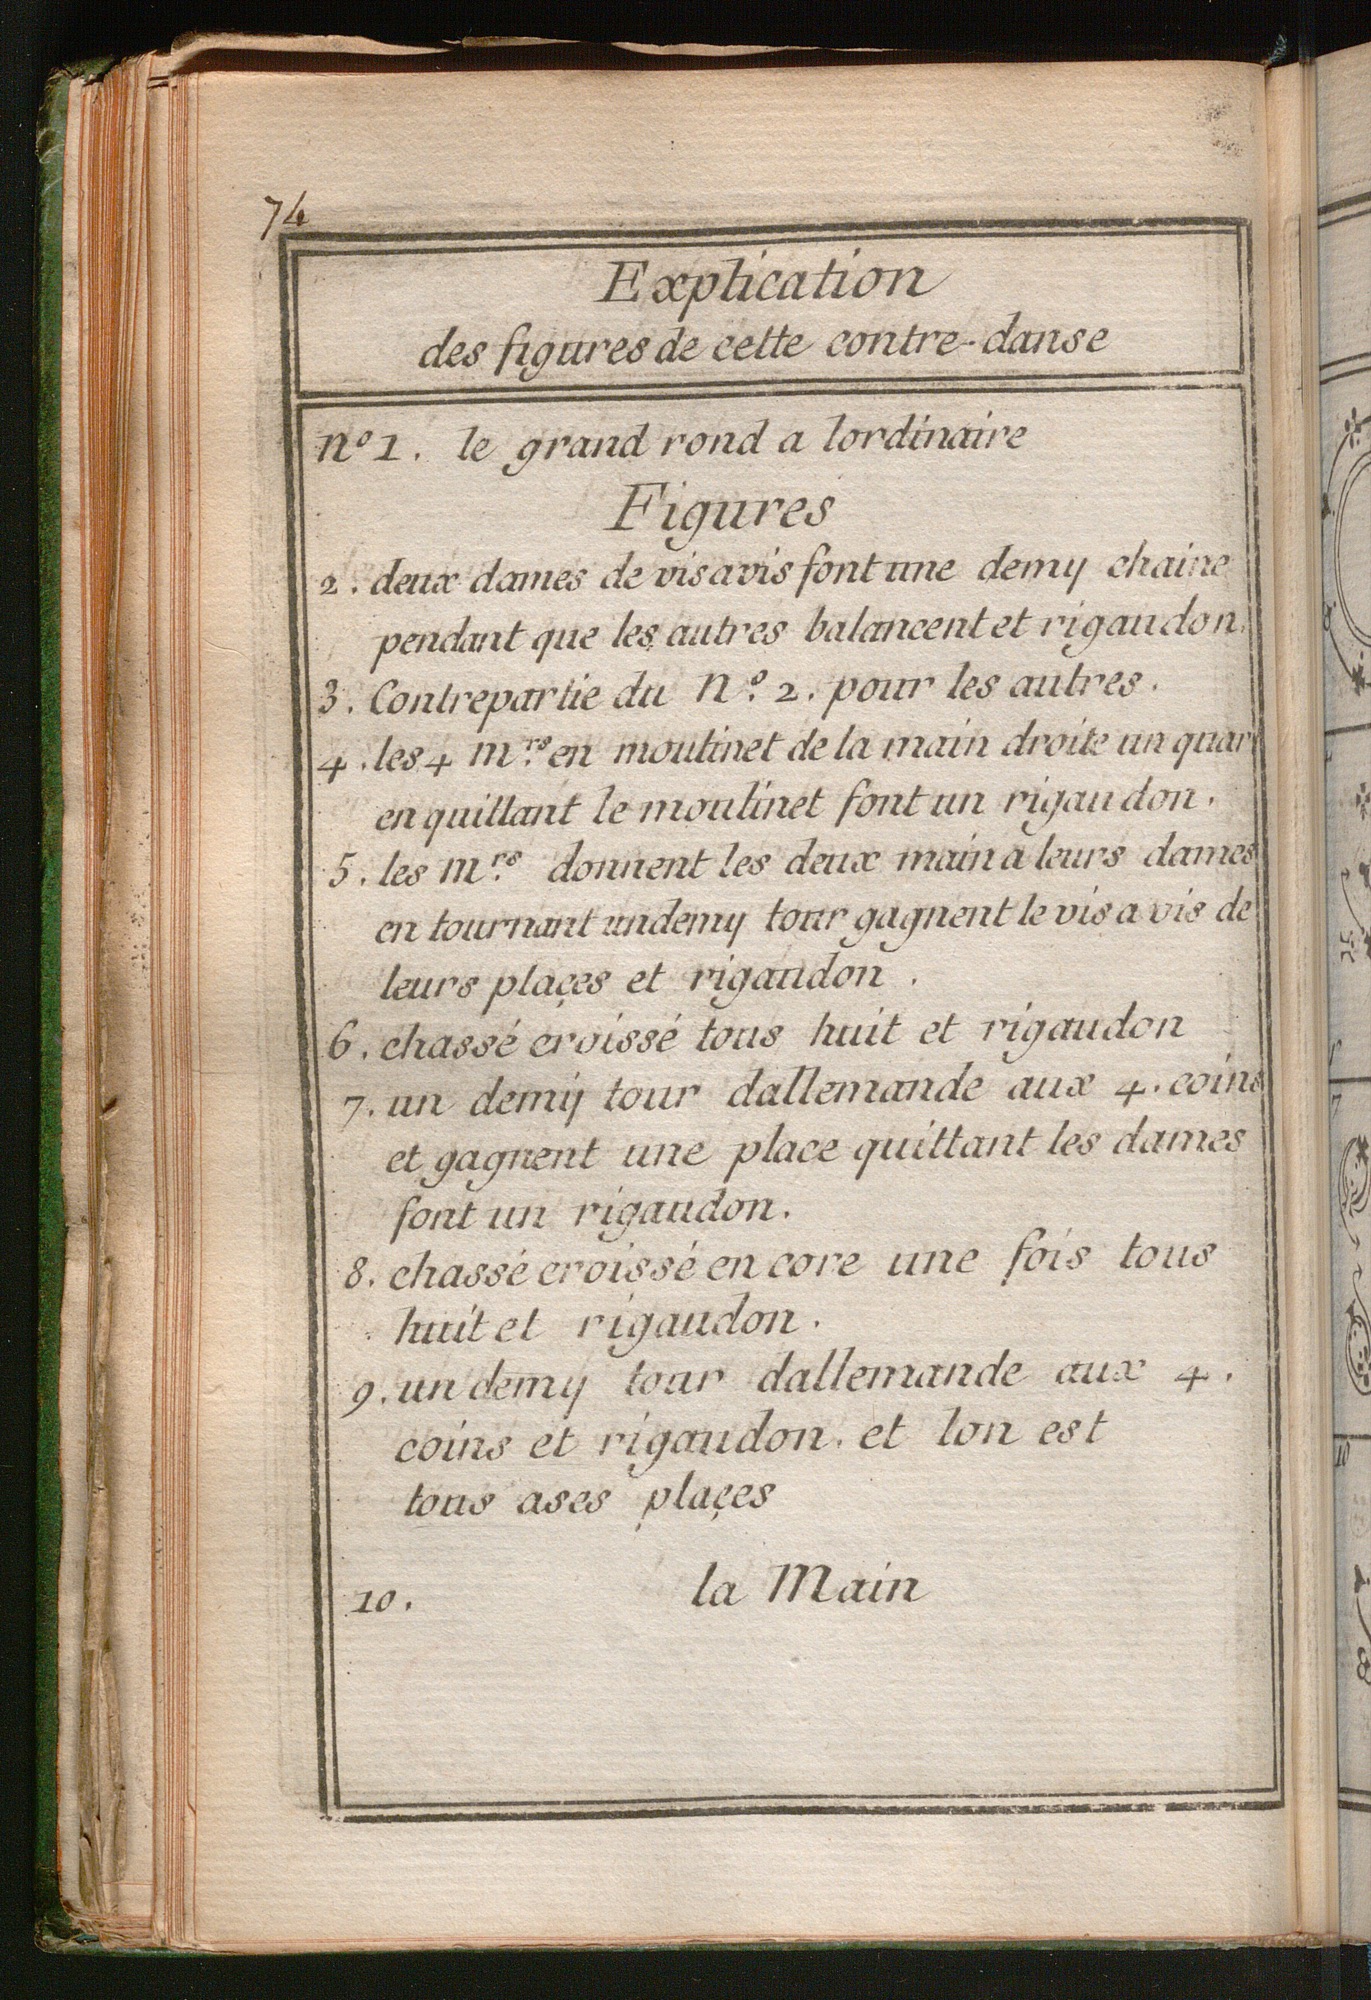 74
Explication
des figures de cette contre-danse
nº 1. le grand rond a lordinaire
Figures
2. deux dames de visavis font une demy chaine
pendant que les autres balancent et rigaudon.
3. Contrepartie du Nº. 2. pour les autres.
4. les 4 mrs. en moulinet de la main droite un quart
en quittant le moulinet font un rigaudon.
5. les mrs. donnent les deux main a leurs dames
en tournant undemy tour gagnent le vis a vis de
leurs plaçes et rigaudon.
6. chassé croissé tous huit et rigaudon
7. un demy tour dallemande aux 4. coins
et gagnent une place quittant les dames
font un rigaudon.
8. chassé croissé encore une fois tous
huit et rigaudon.
9. un demy tour dallemande aux 4.
coins et rigaudon. et lon est
tous ases plaçes
10. la Main
10